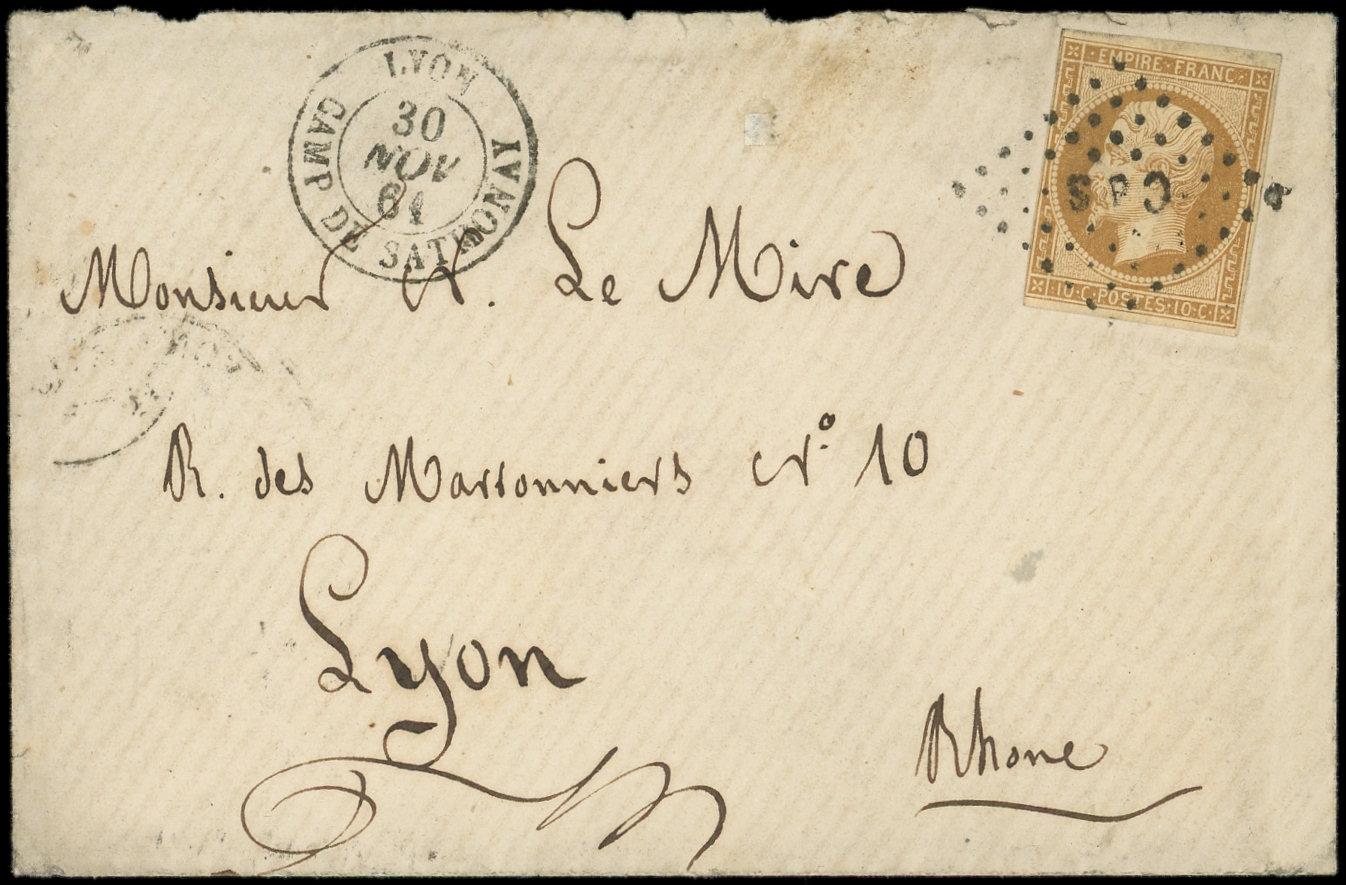 LYON
CAMP DE SATHONAY
30
NOV
61
EMPIRE · FRANC ·
CPS
10 · C · POSTES · 10 · C ·
Monsieur A. Le Mire
R. des Marronniers No 10
Lyon
Rhone